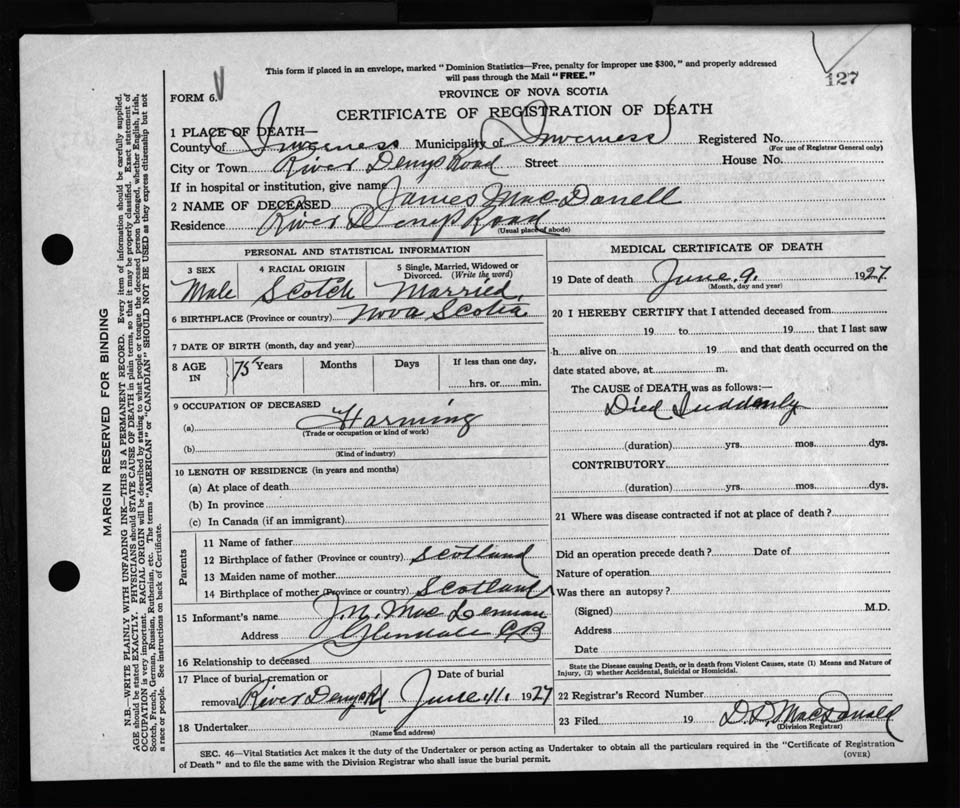 This form if placed in an envelope, marked "Dominion Statistics—Free, penalty for improper use $300," and properly addressed
will pass through the Mail "FREE."
127
FORM 6.
PROVINCE OF NOVA SCOTIA
CERTIFICATE OF REGISTRATION OF DEATH
1 PLACE OF DEATH—
County of Inverness Municipality of Inverness Registered No.
(For use of Registrar General only)
City or Town River Denys Road Street House No.
If in hospital or institution, give name
2 NAME OF DECEASED James MacDonell
Residence River Denys Road
(Usual place of abode)
PERSONAL AND STATISTICAL INFORMATION
3 SEX 4 RACIAL ORIGIN 5 Single, Married, Widowed or
Divorced. (Write the word)
Male Scotch Married
6 BIRTHPLACE (Province or country) Nova Scotia
7 DATE OF BIRTH (month, day and year)
8 AGE IN 75 Years Months Days If less than one day,
hrs. or min.
9 OCCUPATION OF DECEASED
(a) Farming
(Trade or occupation or kind of work)
(b)
(Kind of industry)
10 LENGTH OF RESIDENCE (in years and months)
(a) At place of death
(b) In province
(c) In Canada (if an immigrant)
Parents
11 Name of father
12 Birthplace of father (Province or country) Scotland
13 Maiden name of mother
14 Birthplace of mother (Province or country) Scotland
15 Informant's name J. N. MacLennan
Address Glendale C.B
16 Relationship to deceased
17 Place of burial, cremation or Date of burial
removal River Denys Rd June 11 1927
18 Undertaker
(Name and address)
MEDICAL CERTIFICATE OF DEATH
19 Date of death June 9. 1927.
(Month, day and year)
20 I HEREBY CERTIFY that I attended deceased from
19 to 19 that I last saw
h alive on 19 and that death occurred on the
date stated above, at m.
The CAUSE of DEATH was as follows:—
Died Suddenly
(duration) yrs. mos. dys.
CONTRIBUTORY
(duration) yrs. mos. dys.
21 Where was disease contracted if not at place of death?
Did an operation precede death? Date of
Nature of operation
Was there an autopsy?
(Signed) M.D.
Address
Date
State the Disease causing Death, or in death from Violent Causes, state (1) Means and Nature of
Injury, (2) whether Accidental, Suicidal or Homicidal.
22 Registrar's Record Number
23 Filed 19 D. D. MacDonell
(Division Registrar)
SEC. 46—Vital Statistics Act makes it the duty of the Undertaker or person acting as Undertaker to obtain all the particulars required in the "Certificate of Registration
of Death" and to file the same with the Division Registrar who shall issue the burial permit.
(OVER)
MARGIN RESERVED FOR BINDING
N.B.—WRITE PLAINLY WITH UNFADING INK—THIS IS A PERMANENT RECORD. Every item of information should be carefully supplied.
AGE should be stated EXACTLY. PHYSICIANS should STATE CAUSE OF DEATH in plain terms, so that it may be properly classified. Exact statement of
OCCUPATION is very important. RACIAL ORIGIN will be described by stating to what people or tongue the deceased person belonged, whether English, Irish,
Scotch, French, German, Russian, Ruthenian, etc. The terms "AMERICAN" or "CANADIAN" SHOULD NOT BE USED as they express citizenship but not
a race or people. See instructions on back of Certificate.